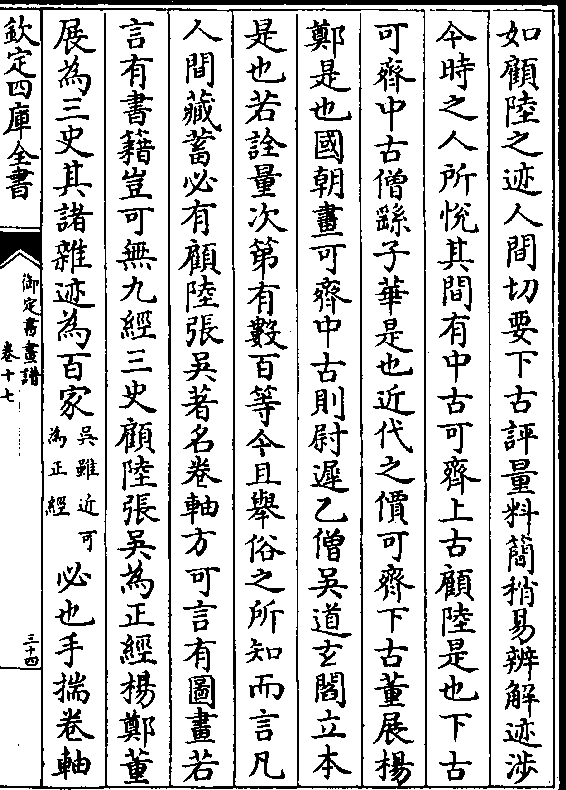 如顧陸之迹人間切要下古評量料蕳稍易辨解迹涉
今時之人所悦其間有中古可齊上古顧陸是也下古
可齊中古僧繇子華是也近代之價可齊下古董展楊
鄭是也國朝畫可齊中古則尉遲乙僧吳道玄閻立本
是也若詮量次第有數百等今且舉俗之所知而言凡
人間藏蓄必有顧陸張吳著名卷軸方可言有圖畫若
言有書籍豈可無九經三史顧陸張吳為正經楊鄭董
展為三史其諸雜迹為百家吳雖近可為正經必也手揣卷軸
欽定四庫全書
御定書畫譜
卷十七
三十四